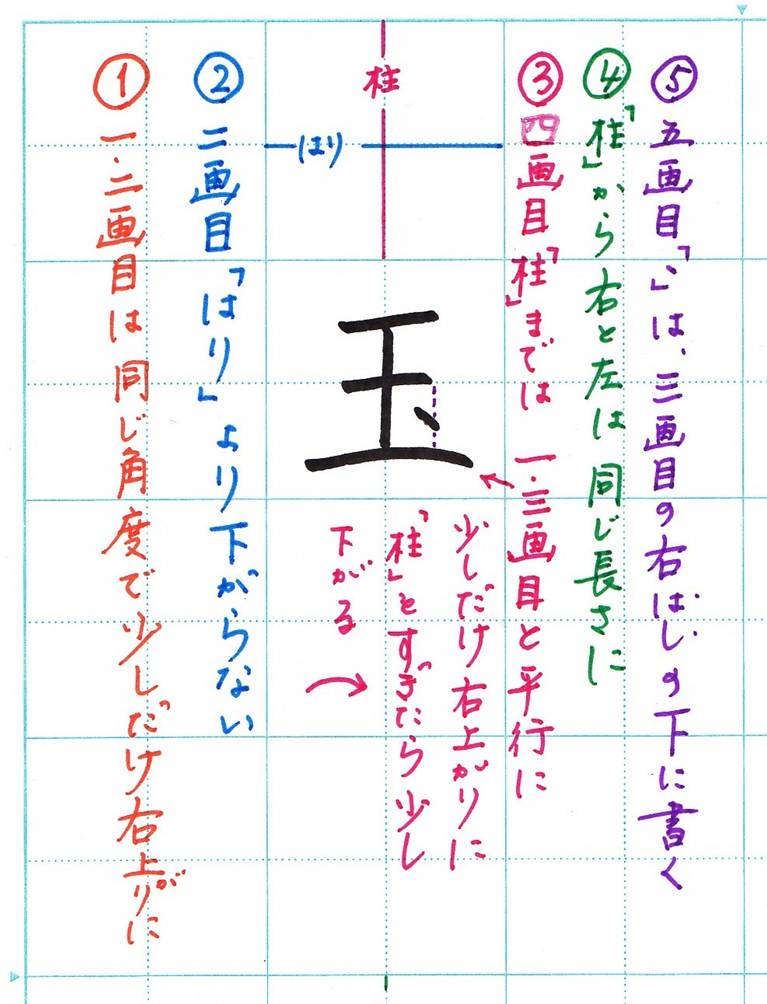 柱
はり
玉
① 一・二画目は同じ角度で少しだけ右上がりに
② 二画目「はり」より下がらない
③ 四画目「柱」までは 一・三画目と平行に
少しだけ右上がりに
「柱」とすぎたら少し
下がる
④ 「柱」から右と左は同じ長さに
⑤ 五画目「、」は、三画目の右はしの下に書く